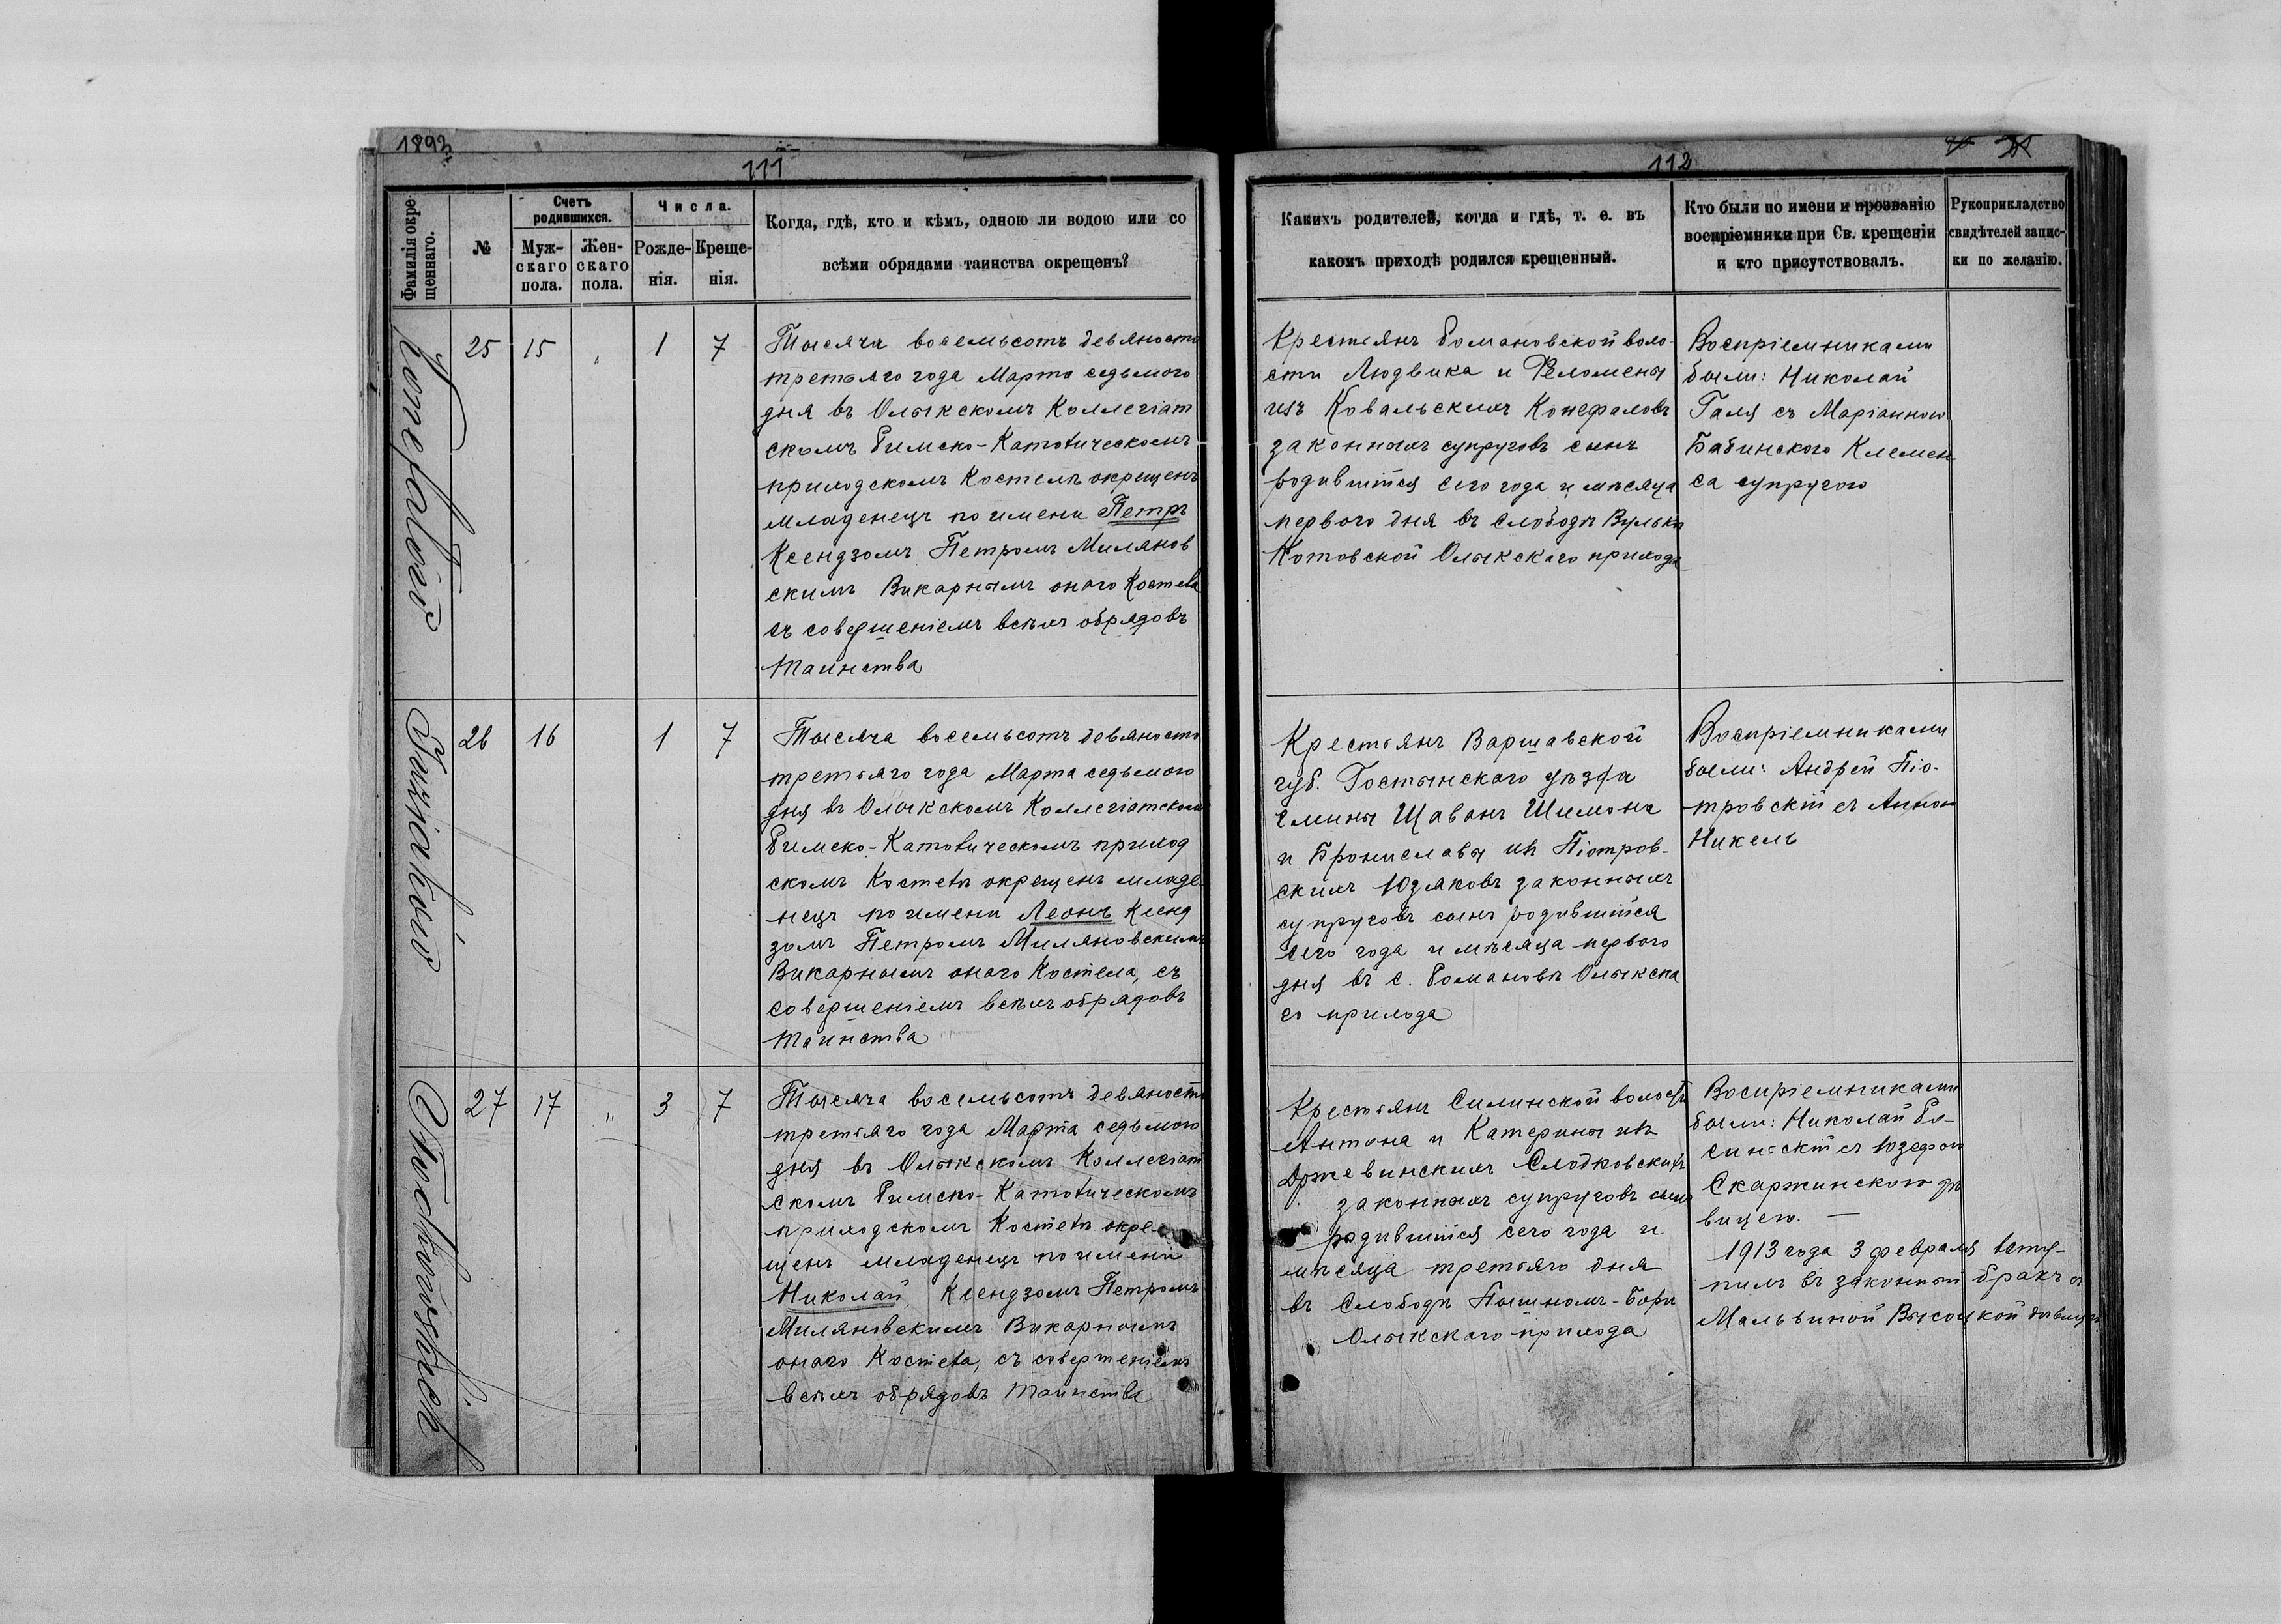 1893
111
Фамилія окре-
щеннаго.
№
Счетъ
родившихся.
Муж-
скаго
пола.
Жен-
скаго
пола.
Числа.
Рожде-
нія.
Креще-
нія.
Когда, гдѣ, кто и кѣмъ, одною ли водою или со
всѣми обрядами таинства окрещенъ?
25
15
"
1
7
Тысяча восемьсотъ девяносто
третьяго года Марта седьмого
дня въ Олыкскомъ Коллегіат
скомъ Римско-Католическомъ
приходскомъ Костелѣ окрещенъ
младенецъ по имени Петръ
Ксендзомъ Петромъ Милянов
скимъ Викарнымъ онаго Костела
съ совершеніемъ всѣхъ обрядовъ
Таинства
Józiaków
26
16
1
7
Тысяча восемьсотъ девяносто
третьяго года Марта седьмого
дня въ Олыкскомъ Коллегіатском
Римско-Католическомъ приход
скомъ Костелѣ окрещенъ младе
нецъ по имени Леонъ Ксенд
зомъ Петромъ Миляновскимъ
Викарнымъ онаго Костела, съ
совершеніемъ всѣхъ обрядовъ
Таинства
Słodkowskich
27
17
"
3
7
Тысяча восемьсотъ девяносто
третьяго года Марта седьмого
дня въ Олыкскомъ Коллегіат
скомъ Римско-Католическомъ
приходскомъ Костелѣ окре
щенъ младенецъ по имени
Николай, Ксендзомъ Петромъ
Миляновскимъ Викарнымъ
онаго Костела, съ совершеніемъ
всѣхъ обрядовъ Таинства
112
Какихъ родителей, когда и гдѣ, т. е. въ
какомъ приходѣ родился крещенный.
Кто были по имени и прозванію
воспріемники при Св. крещеніи
и кто присутствовалъ.
Рукоприкладство
свидѣтелей запис-
ки по желанію.
Крестьянъ Романовской воло-
сти Людвика и Феломены
изъ Ковальскихъ Конефаловъ
законныхъ супруговъ сынъ
родившійся сего года и мѣсяца
перваго дня въ Слободѣ Вульки
Котовской Олыкскаго прихода
Воспріемниками
были: Николай
Галя съ Маріанною
Бабинскаго Клемен
са супругою
Крестьянъ Варшавской
губ. Гостынскаго уѣзда
Гмины Щавинъ Шимона
и Брониславы изъ Піотров-
скихъ Юзяковъ законныхъ
супруговъ сынъ родившійся
сего года и мѣсяца перваго
дня въ с. Романовѣ Олыкска
го прихода
Воспріемниками
были: Андрей Піо-
тровскій съ Анною
Никель
Крестьянъ Силинской волости
Антона и Катерины изъ
Држевинскихъ Слодковскихъ
законныхъ супруговъ сынъ
родившійся сего года и
мѣсяца третьяго дня
въ Слободѣ Пышномъ-Борѣ
Олыкскаго прихода
Воспріемниками
были: Николай Ро-
синскій съ Юзефою
Скаржинскою дѣ
вицею. —
1913 года 3 февраля всту-
пилъ въ законный бракъ съ
Мальвиной Высоцкой дѣвицей